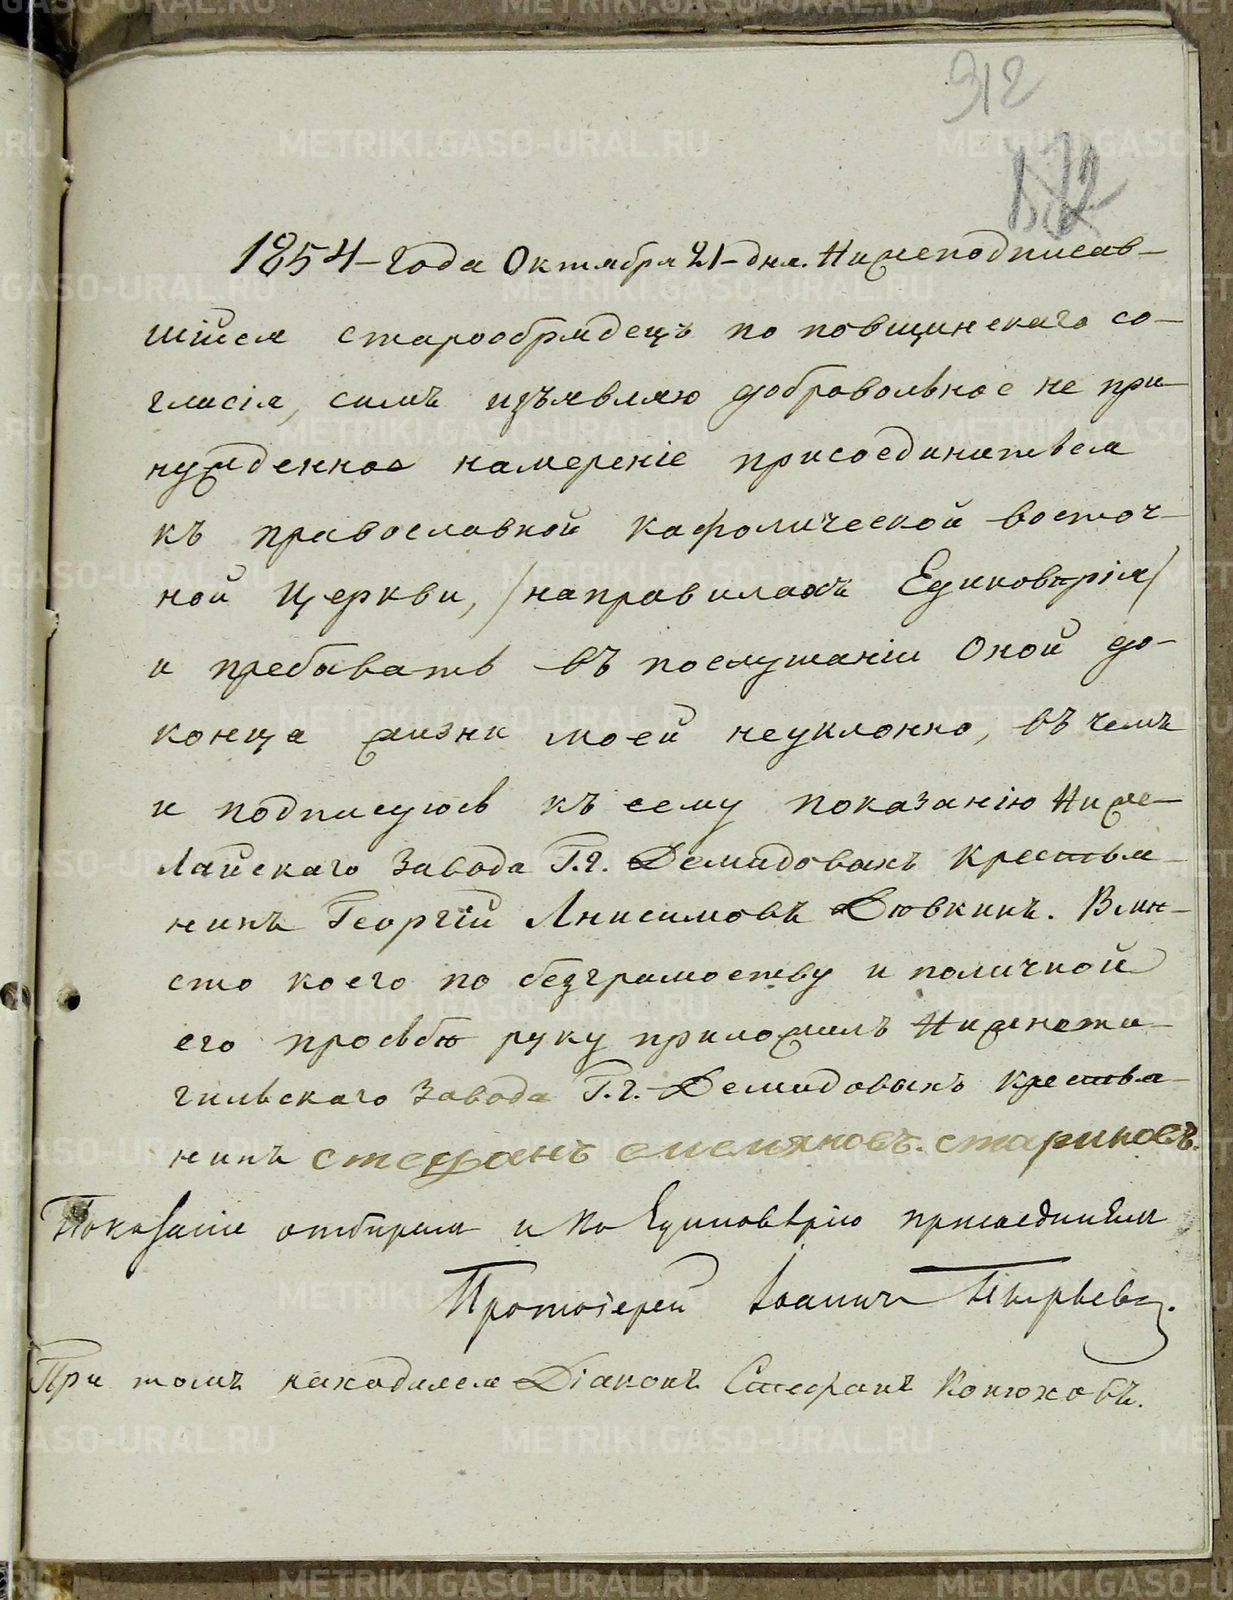 312
1854-года Октября 21-дня. Нижеподписав-
шійся старообрядецъ по повщинскаго со-
гласія, симъ изъявляю добровольное не при-
нужденное намереніе присоединиться
къ православной кафолической восточ-
ной Церкви, /направилахъ Единоверія/
и пребывать въ послушаніи Оной до-
конца жизни моей неуклонно, въ чемъ
и подписуюсь къ сему показанію Ниже-
Лайскаго Завода Г.г. Демидовыхъ крестья-
нинъ Георгій Анисимовъ Дювкинъ. Вмн-
сто коего по безграмотству и поличной
его прозьбю руку приложилъ Нижнета-
гильскаго Завода Г.г.-Демидовыхъ крестья-
нинъ стефанъ емеляновъ. стариковъ.
Показаніе отбиралъ и къ Единоверію присоединилъ
Протоіерей Іоаннъ
При томъ находился Діаконъ Стефанъ Конюховъ.
METRIKI.GASO-URAL.RU